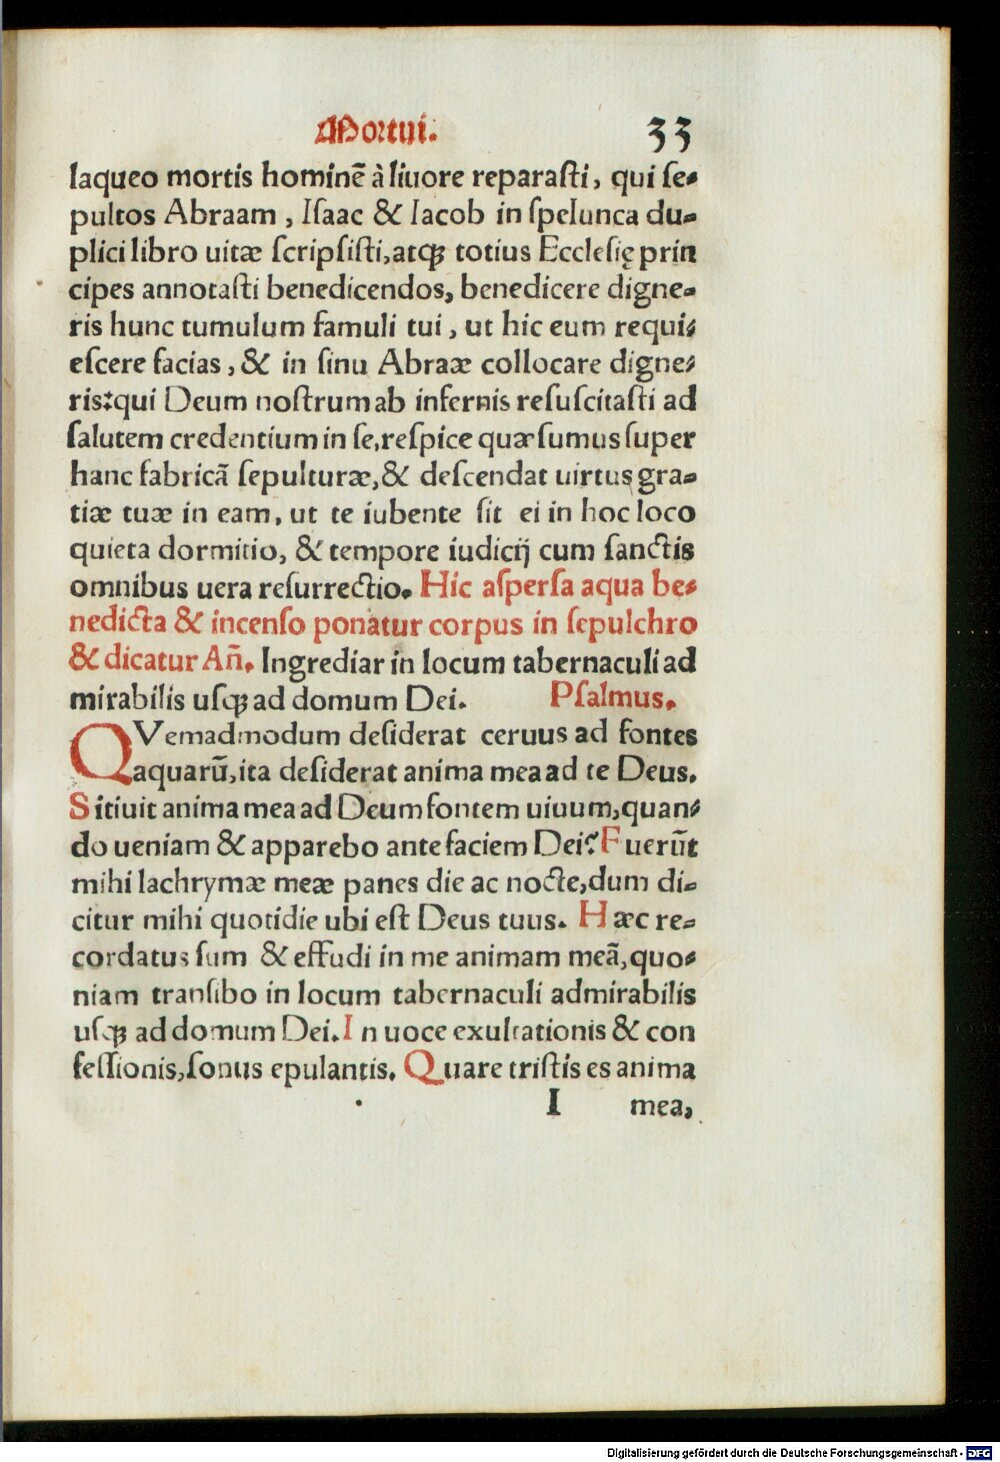 Mortui. 33
laqueo mortis hominẽ à liuore reparaſti, qui ſe-
pultos Abraam, Iſaac & Iacob in ſpelunca du-
plici libro uitæ ſcripſiſti, atqꝫ totius Eccleſię prin
cipes annotaſti benedicendos, benedicere digne-
ris hunc tumulum famuli tui, ut hic eum requi-
eſcere facias, & in ſinu Abraæ collocare digne-
ris: qui Deum noſtrum ab infernis reſuſcitaſti ad
ſalutem credentium in ſe, reſpice quæſumus ſuper
hanc fabricã ſepulturæ, & deſcendat uirtus gra-
tiæ tuæ in eam, ut te iubente ſit ei in hoc loco
quieta dormitio, & tempore iudicij cum ſanctis
omnibus uera reſurrectio. Hic aſperſa aqua be-
nedicta & incenſo ponatur corpus in ſepulchro
& dicatur Añ. Ingrediar in locum tabernaculi ad
mirabilis uſqꝫ ad domum Dei. Pſalmus.
QVemadmodum deſiderat ceruus ad fontes
aquarũ, ita deſiderat anima mea ad te Deus.
Sitiuit anima mea ad Deum fontem uiuum, quan-
do ueniam & apparebo ante faciem Dei? Fuerũt
mihi lachrymæ meæ panes die ac nocte, dum di-
citur mihi quotidie ubi eſt Deus tuus. Hæc re-
cordatus ſum & effudi in me animam meã, quo-
niam tranſibo in locum tabernaculi admirabilis
uſqꝫ ad domum Dei. In uoce exultationis & con
feſſionis, ſonus epulantis. Quare triſtis es anima
I mea,
Digitalisierung gefördert durch die Deutsche Forschungsgemeinschaft - DFG